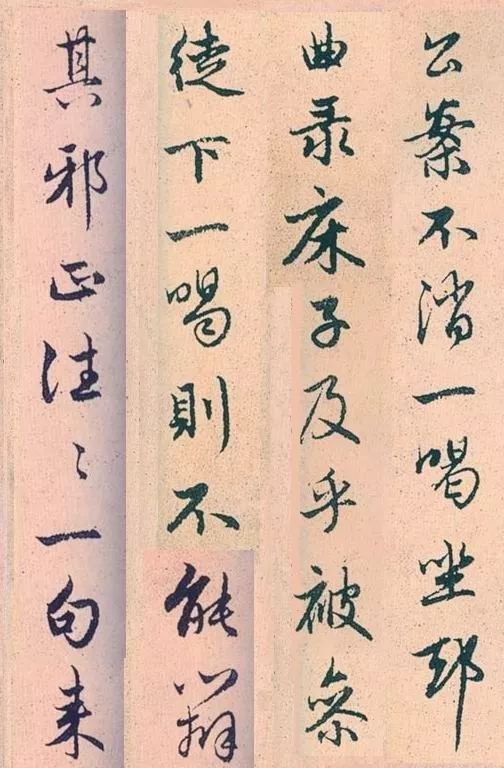 公案不消一喝坐却
曲录床子及乎被参
徒下一喝則不能辨
其邪正往〻一句来